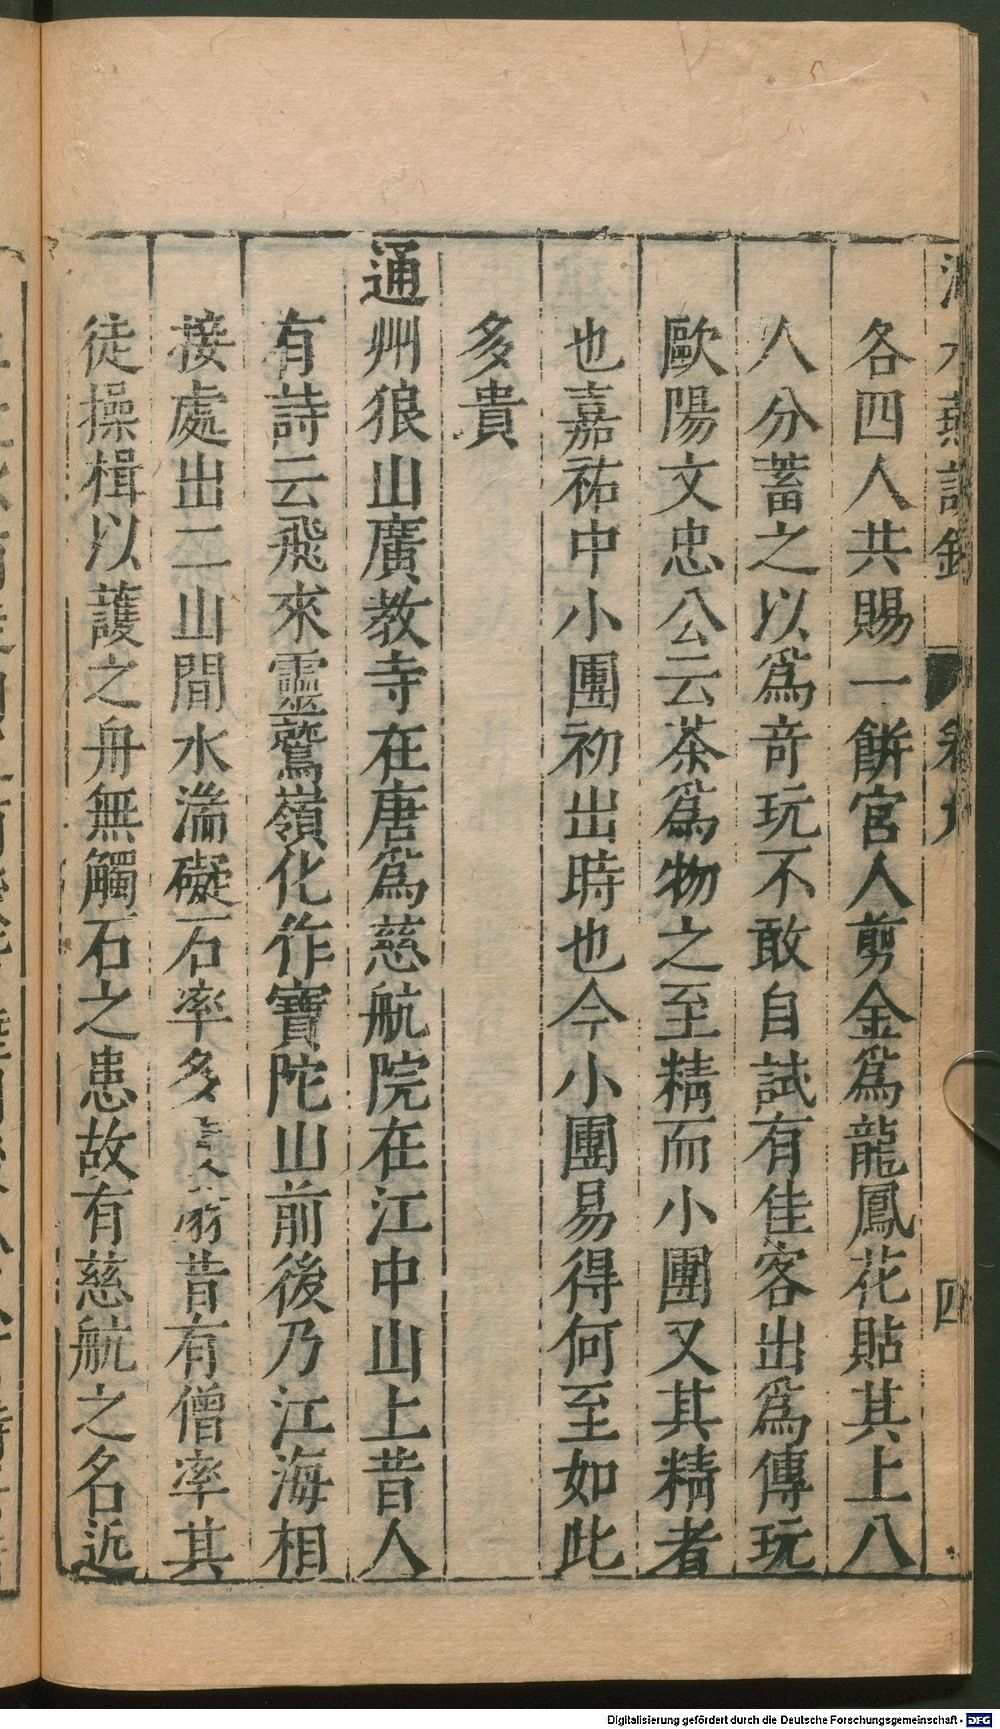 燕談錄 卷九 四
各四人共賜一餅宫人剪金爲龍鳳花貼其上八
人分蓄之以爲奇玩不敢自試有佳客出爲傳玩
歐陽文忠公云茶爲物之至精而小團又其精者
也嘉祐中小團初出時也今小團易得何至如此
多貴
通州狼山廣教寺在唐爲慈航院在江中山上昔人
有詩云飛來靈鷲嶺化作寶陀山前後乃江海相
接處出二山間水湍礙石率多昔有僧率其
徒操楫以護之舟無觸石之患故有慈航之名近
Digitalisierung gefördert durch die Deutsche Forschungsgemeinschaft - DFG